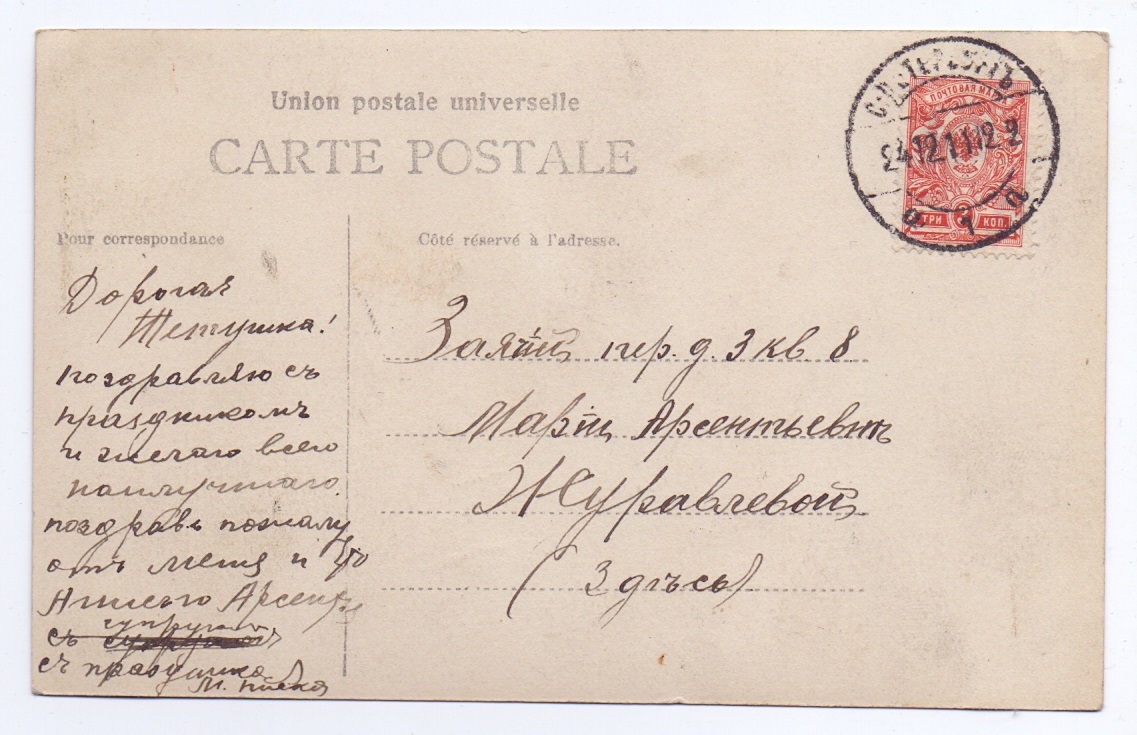 Union postale universelle
CARTE POSTALE
С.ПЕТЕРБУРГЪ
24 12 11 12 2
1
ПОЧТОВАЯ МАРКА
ТРИ КОП.
Pour correspondance
Côté réservé à l'adresse.
Дорогая
Тетушка!
поздравляю съ
праздникомъ
и желаю всего
наилучшаго.
поздравь пожалу
отъ меня и
Арсент
съ супругою
съ
М.
Заячiй пер. д. 3 кв. 8
Марiи Арсентьевнѣ
Журавлевой
(Здѣсь)